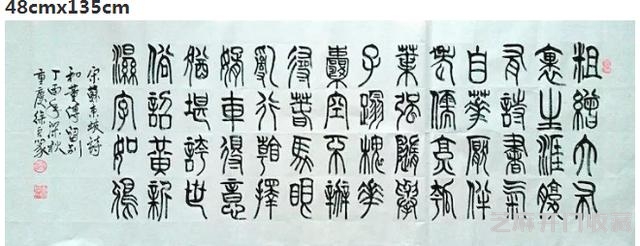 48cmx135cm
粗繒大布
裹生涯腹
有詩書氣
自華厭伴
老儒烹瓠
葉強隨舉
子蹋槐華
囊空不辦
尋春馬眼
亂行看擇
婿車得意
猶堪誇世
俗詔黃新
濕字如鴉
宋蘇東坡詩
和董傳留別
丁酉年深秋
重慶徐
芝麻开门收藏